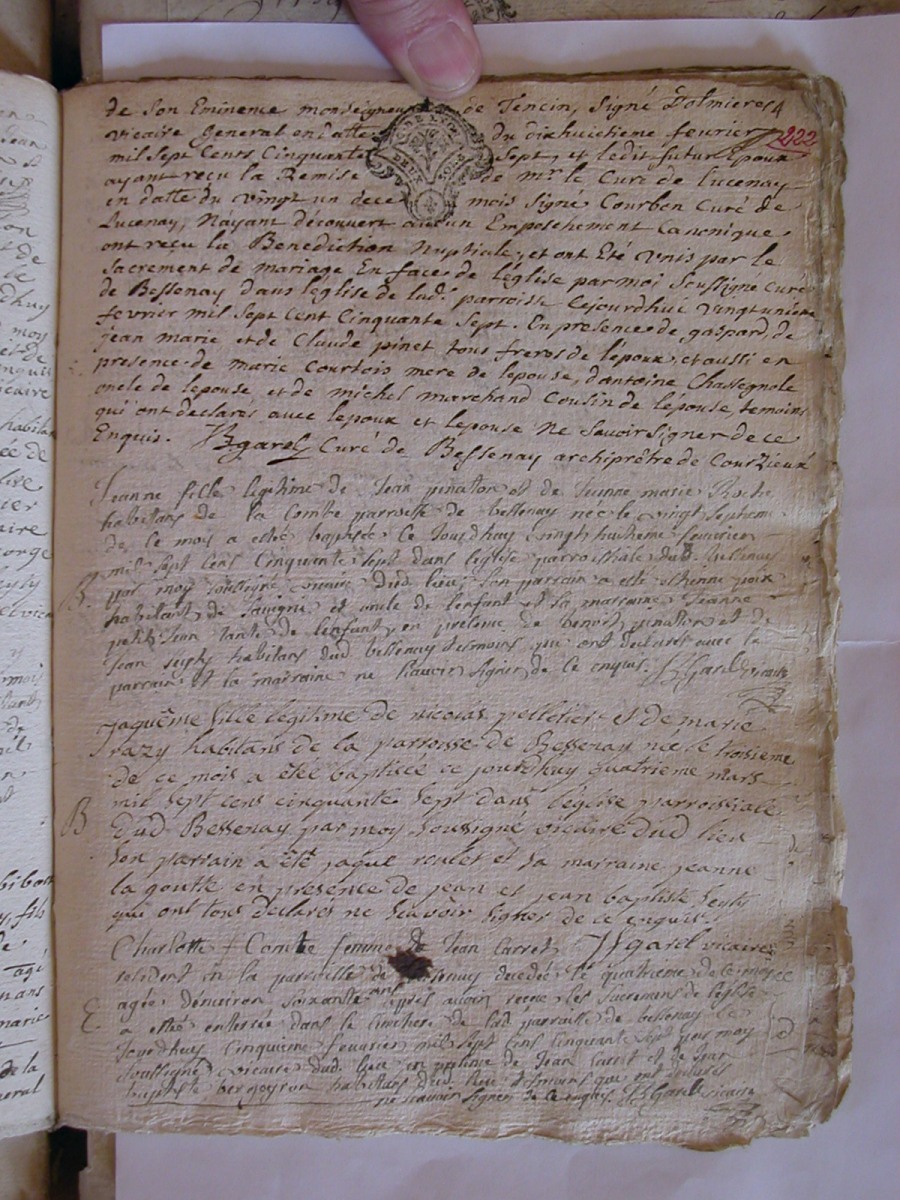 de Son Eminence monseigneur de Tencin, Signé Dolmieres
vicaire General en datte du dixhuictieme fevrier
222
mil Sept Cents Cinquante Sept, et ledit futur Epoux
ayant reçu la Remise de mr le Curé de Lucenay
en datte du vingt un de ce mois Signe Courbon Curé de
Lucenay, Nayant découvert aucun Empeschement Canonique
ont reçu la Benediction Nuptiale, et ont Eté unis par le
Sacrement de mariage En face de l'église par moi Soussigné Curé
de Bessenay dans l'eglise de lad. parroisse Cejourdhui vingtunieme
fevrier mil Sept Cent Cinquante Sept. En presence de gaspard, de
jean marie et de Claude pinet tous freres de l'epoux, et aussi en
presence de marie Courtois mere de lepouse, d'antoine Chassagnole
oncle de lepouse, et de michel marchand Cousin de l'épouse, temoins
qui ont declarés avec lepoux et lepouse Ne Savoir Signer de ce
Enquis. Curé de Bessenay archiprêtre de Courzieux
Jeanne fille legitime de Jean pinaton et de marie Roche
habitans de la Combe parroisse de bessenay née le vingt Septieme
de ce mois a estée baptisée ce Jourdhuy vingt huitieme fevrier
mil Sept Cens Cinquante Sept dans leglise parroissiale dud Bessenay
B.
par moy Soussigné vicaire dud lieu Son parrain a eté
habitant de Savigny et oncle de lenfant et sa marraine Jeanne
petit Jean tante de lenfant, en presence de benoit pinaton et de
Jean habitans dud bessenay temoins qui ont declarés avec le
parrain et la marraine ne Scavoir Signer de ce enquis. Garel vicaire
jaquême fille légitime de nicolas pelletier et de marie
razy habitans de la parroisse de Bessenay née le troisieme
de ce mois a étée baptisée ce jourdhuy quatrieme mars
mil sept cens cinquante Sept dans l'église parroissiale
B
dud Bessenay par moy soussigné vicaire dud lieu
Son parrain a été jaque et sa marraine jeanne
la goutte en presence de jean et jean baptiste
qui ont tous declarés ne Scavoir signer de ce enquis.
Charlotte Combe femme de Jean Carret Garel vicaire
resident en la parroisse de bessenay decedée le quatrieme de ce mois
agée denviron Soixante ans apres avoir reçue les Sacremens de l'église
E
a estée enterrée dans le cimetiere de lad parroisse de bessenay ce
Jourdhuy cinquieme fevrier mil Sept Cens Cinquante Sept par moy
Soussigné vicaire dud lieu en presence de Jean Carret et de Jean
baptiste bergeyron habitans dud lieu temoins qui ont declarés
ne scavoir signer de ce enquis Garel vicaire